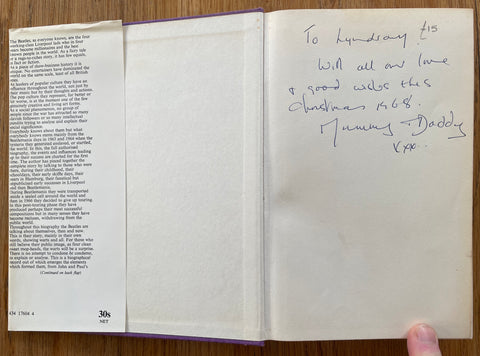 The Beatles, as everyone knows, are the four
working-class Liverpool lads who in four
years became millionaires and the best
known people in the world. As a fairy tale
or a rags-to-riches story, it has few equals,
in fact or fiction.
As a piece of show-business history it is
unique. No entertainers have dominated the
world on the same scale, least of all British
ones.
As leaders of popular culture they have an
influence throughout the world, not just by
their music but by their thoughts and actions.
The pop culture they represent, for better or
for worse, is at the moment one of the few
genuinely creative and living art forms.
As a social phenomenon, no group of
people since the war has attracted so many
devout followers or so many intellectual
pundits trying to analyse and explain their
social significance.
Everybody knows about them but what
everybody knows stems mainly from the
Beatlemania days in 1963 and 1964 when the
hysteria they generated enthused, or startled,
the world. In this, the full authorised
biography, the events and influences leading
up to their success are charted for the first
time. The author has pieced together the
complete story by talking to those who were
there, during their childhood, their
schooldays, their early skiffle days, their
years in Hamburg, their fanatical but
unpublicised early successes in Liverpool
and then Beatlemania.
During Beatlemania they were transported
inside a sealed cell around the world and
then in 1966 they decided to give up touring.
In this post-touring phase they have
produced perhaps their most successful
compositions but in many senses they have
become recluses, withdrawing from the
public world.
Throughout this biography the Beatles are
talking about themselves, then and now.
This is their story, mainly in their own
words, showing warts and all. For those who
still believe their public image, as four clean
sweet mop-heads, the warts will be a surprise.
There is no attempt to condemn or condone,
to explain or analyse. This is a biographical
record out of which emerges the elements
which formed them, from John and Paul's
(Continued on back flap)
434 17604 4
30s
NET
To Lyndsay £15
With all our love
& good wishes this
Christmas 1968.
Mummy & Daddy
xxx.